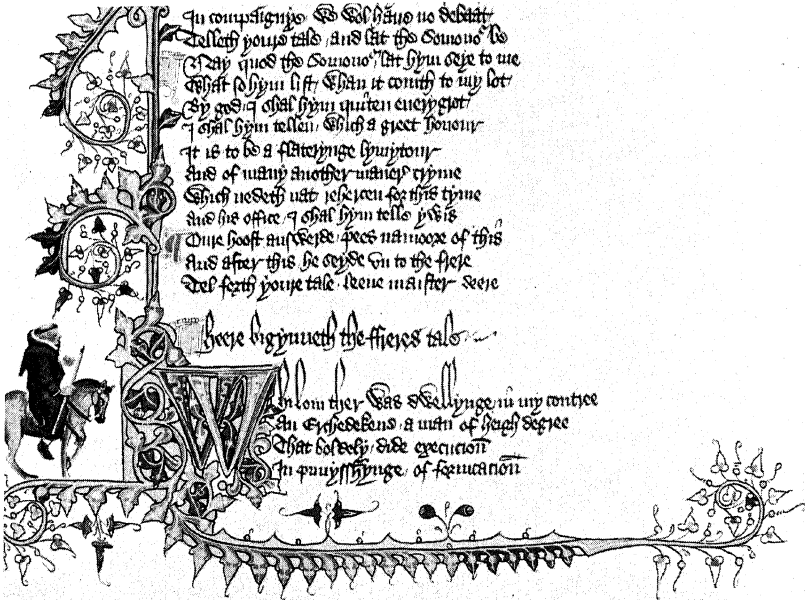 In compaignye we wol haue no debaat
Telleth youre tale and lat the Somonor be
Nay quod the Somonor lat hym seye to me
What so hym list whan it comth to my lot
By god I shal hym quiten euery grot
I shal hym tellen which a greet honour
It is to be a flaterynge lymytour
And of many another maner cryme
Which nedeth nat rehercen for this tyme
And his office I shal hym telle ywis
Oure hoost answerde pees namoore of this
And after this he seyde vn to the frere
Tel forth youre tale leeue maister deere
Heere bigynneth the ffreres tale
Whilom ther was dwellynge in my contree
An Erchedekene a man of heigh degree
That boldely dide execucion
In punysshynge of fornicacion